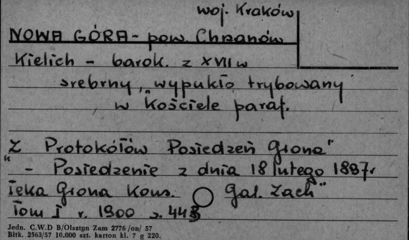 woj. Kraków
NOWA GÓRA - pow. Chrzanów
Kielich - barok. z XVII w
srebrny „wypukło trybowany
w kościele paraf.
„Z Protokółów Posiedzeń Grona"
- Posiedzenie z dnia 18 lutego 1897r
Teka Grona Kons. Gal. Zach"
Tom I r. 1900 s.
Jedn. C.W.D B/Olsztyn Zam 2776/on/ 57
Bltk. 2563/57 10.000 szt. karton kl. 7 g 220.